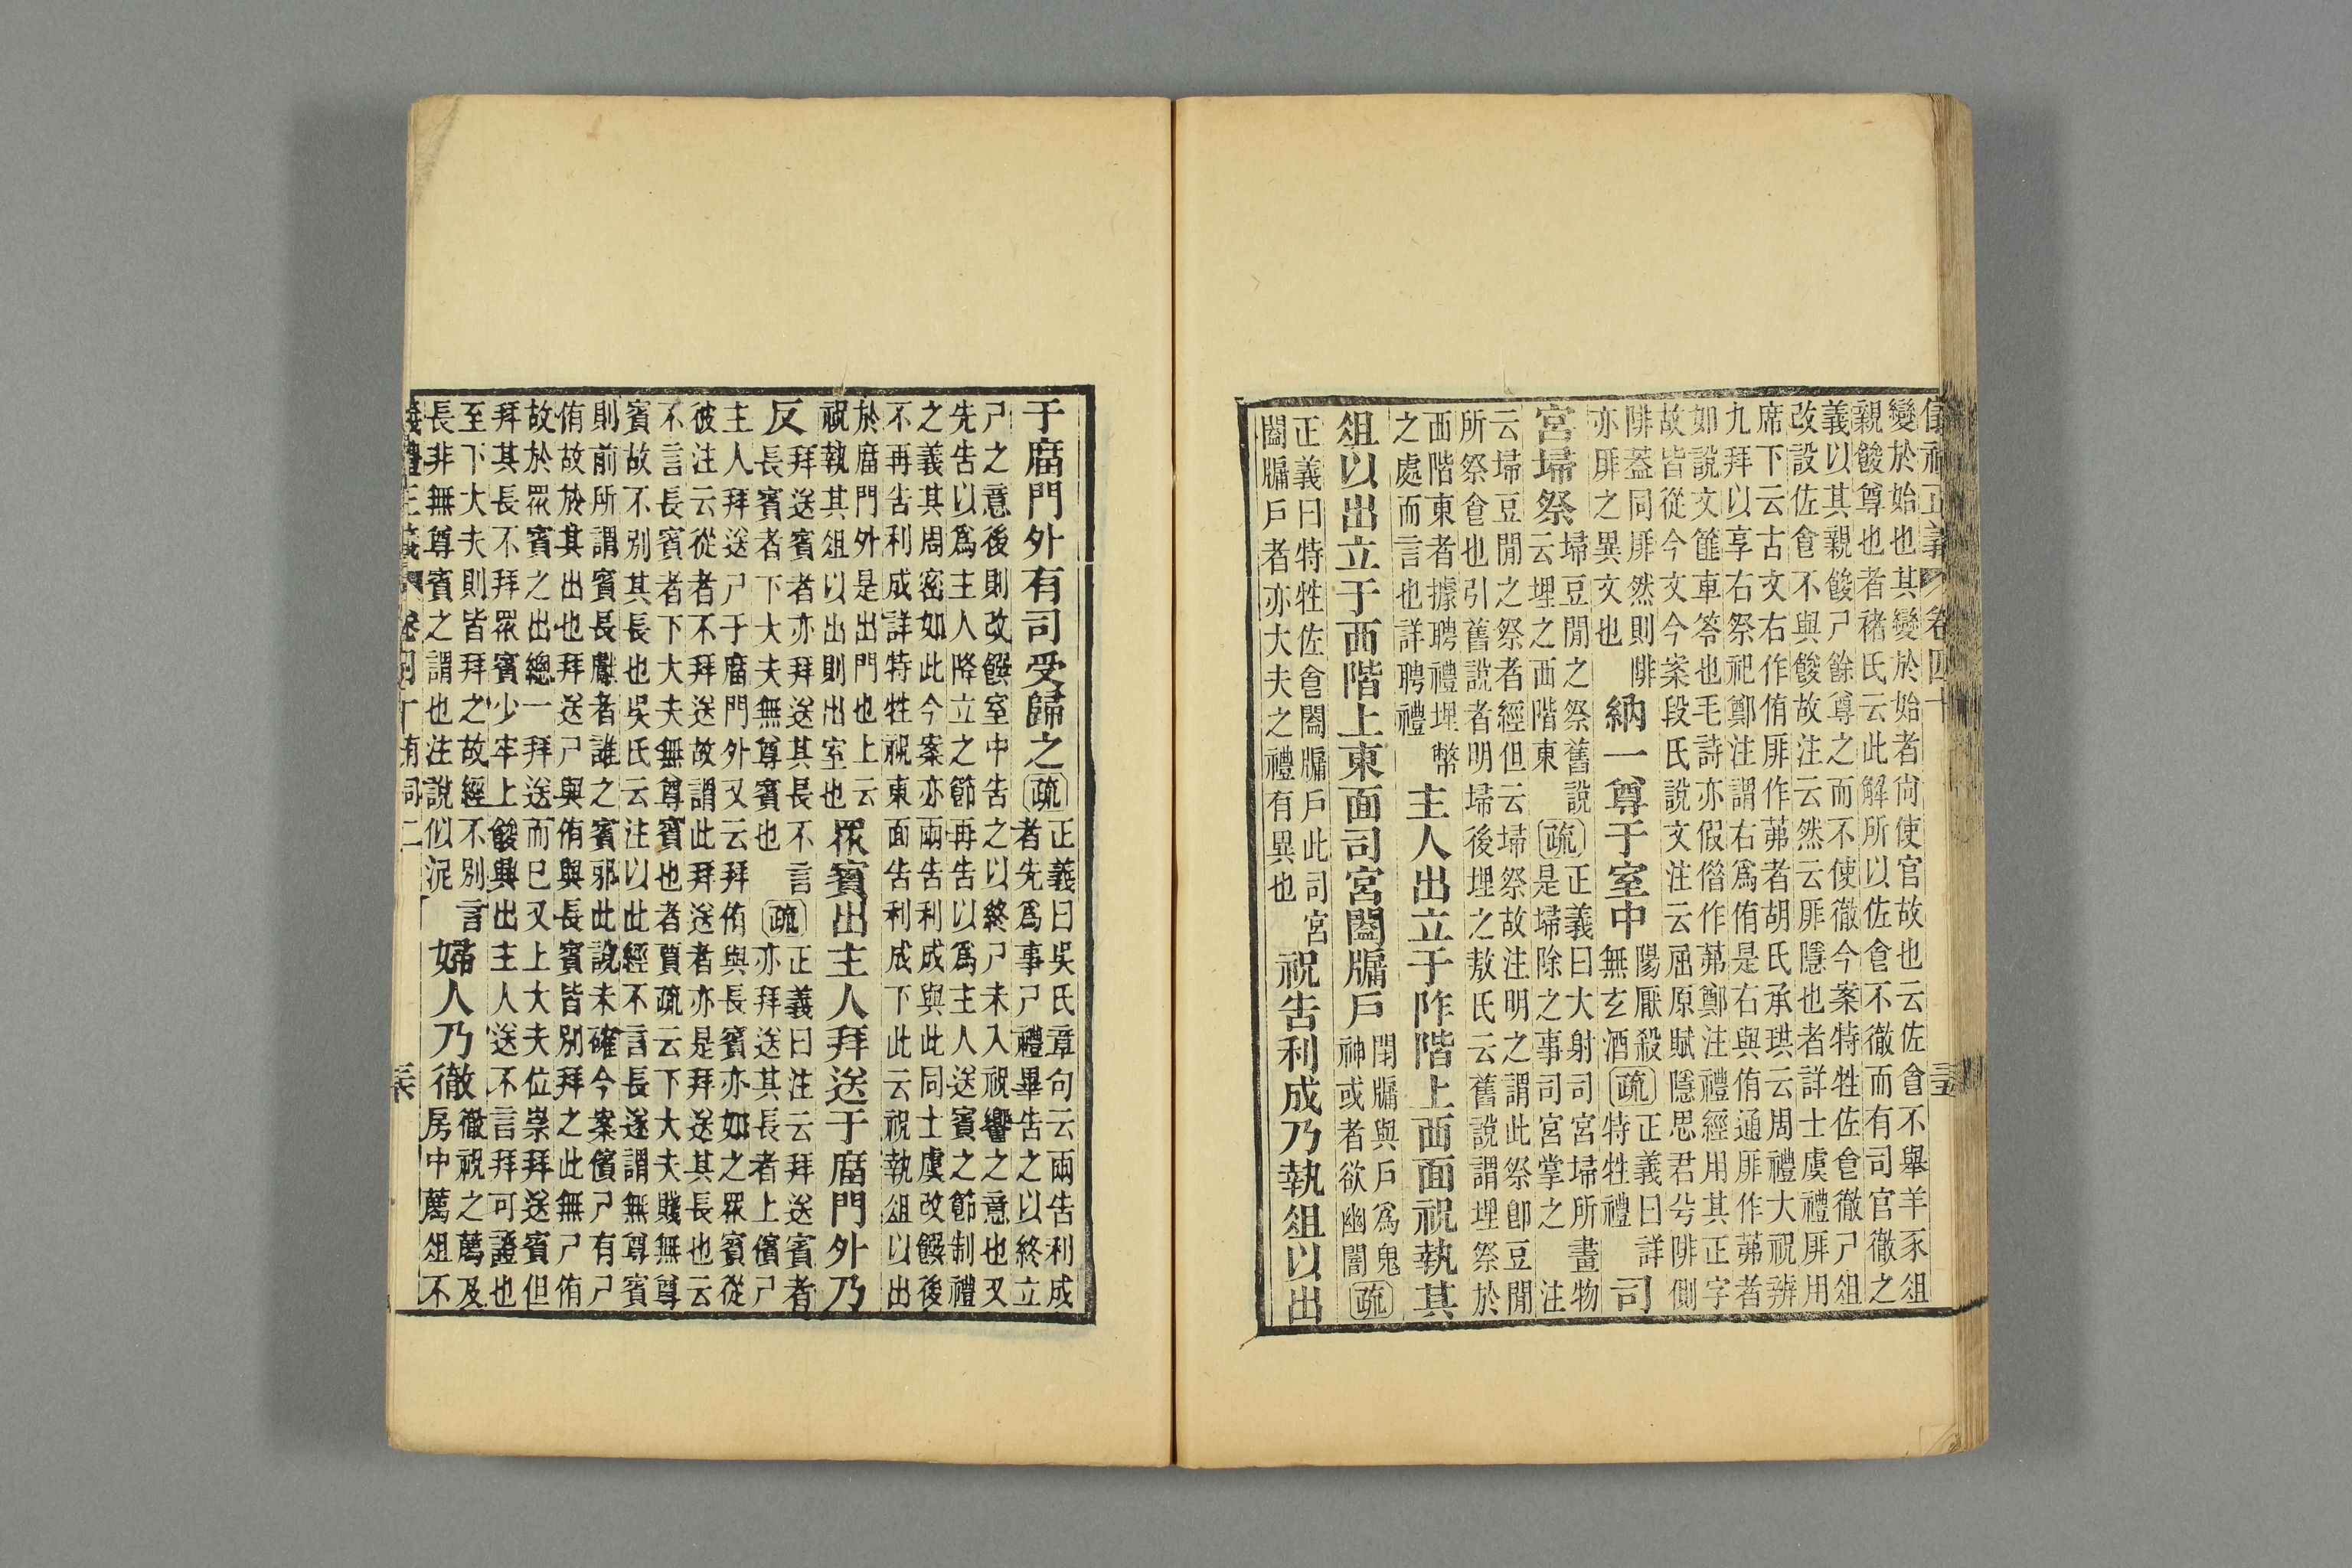 儀禮正義 卷四十
變於始也其變於始者尚使官故也云佐食不舉羊豕俎
親餕尊也者褚氏云此解所以佐食不徹而有司官徹之
義以其親餕尸餘尊之而不使徹今案特牲佐食徹尸俎
改設佐食不與餕故注云然云厞隱也者詳士虞禮厞用
席下云古文右作侑厞作茀者胡氏承珙云周禮大祝辨
九拜以享右祭祀鄭注謂右爲侑是右與侑通厞作茀者
如說文篚車笭也毛詩亦假僭作茀鄭注禮經用其正字
故皆從今文今案段氏說文注云屈原賦隱思君兮陫側
陫葢同厞然則陫
亦厞之異文也
納一尊于室中
陽厭殺
無玄酒
疏
正義曰詳
特牲禮
司
宮埽祭
埽豆閒之祭舊說
云埋之西階東
疏
正義曰大射司宮埽所畫物
是埽除之事司宮掌之注
云埽豆閒之祭者經但云埽祭故注明之謂此祭卽豆閒
所祭食也引舊說者明埽後埋之敖氏云舊說謂埋祭於
西階東者據聘禮埋幣
之處而言也詳聘禮
主人出立于阼階上西面祝執其
俎以出立于西階上東面司宮闔牖戶
閉牖與戶爲鬼
神或者欲幽闇
疏
正義曰特牲佐食闔牖戶此司宮
闔牖戶者亦大夫之禮有異也
祝告利成乃執俎以出
于庿門外有司受歸之
疏
正義曰吳氏章句云兩告利成
者先爲事尸禮畢告之以終立
尸之意後則改饌室中告之以終尸未入祝饗之意也又
先告以爲主人降立之節再告以爲主人送賓之節制禮
之義其周密如此今案亦兩告利成與此同士虞改饌後
不再告利成詳特牲祝東面告利成下此云祝執俎以出
於庿門外是出門也上云
祝執其俎以出則出室也
衆賓出主人拜送于庿門外乃
反
拜送賓者亦拜送其長不言
長賓者下大夫無尊賓也
疏
正義曰注云拜送賓者
亦拜送其長者上儐尸
主人拜送尸于庿門外又云拜侑與長賓亦如之衆賓從
彼注云從者不拜送故謂此拜送者亦是拜送其長也云
不言長賓者下大夫無尊賓也者賈疏云下大夫賤無尊
賓故不別其長也吳氏云注以此經不言長遂謂無尊賓
則前所謂賓長獻者誰之賓邪此說未確今案儐尸有尸
侑故於其出也拜送尸與侑與長賓皆別拜之此無尸侑
故於衆賓之出總一拜送而已又上大夫位崇拜送賓但
拜其長不拜衆賓少牢上餕興出主人送不言拜可證也
至下大夫則皆拜之故經不別言
長非無尊賓之謂也注說似泥
婦人乃徹
徹祝之薦及
房中薦俎不
儀禮正義 卷四十 有司二